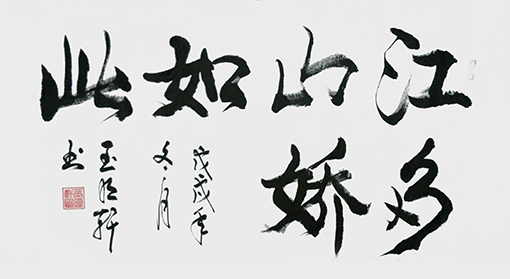 江山如此
多娇
戊戌年
冬月
轩
书